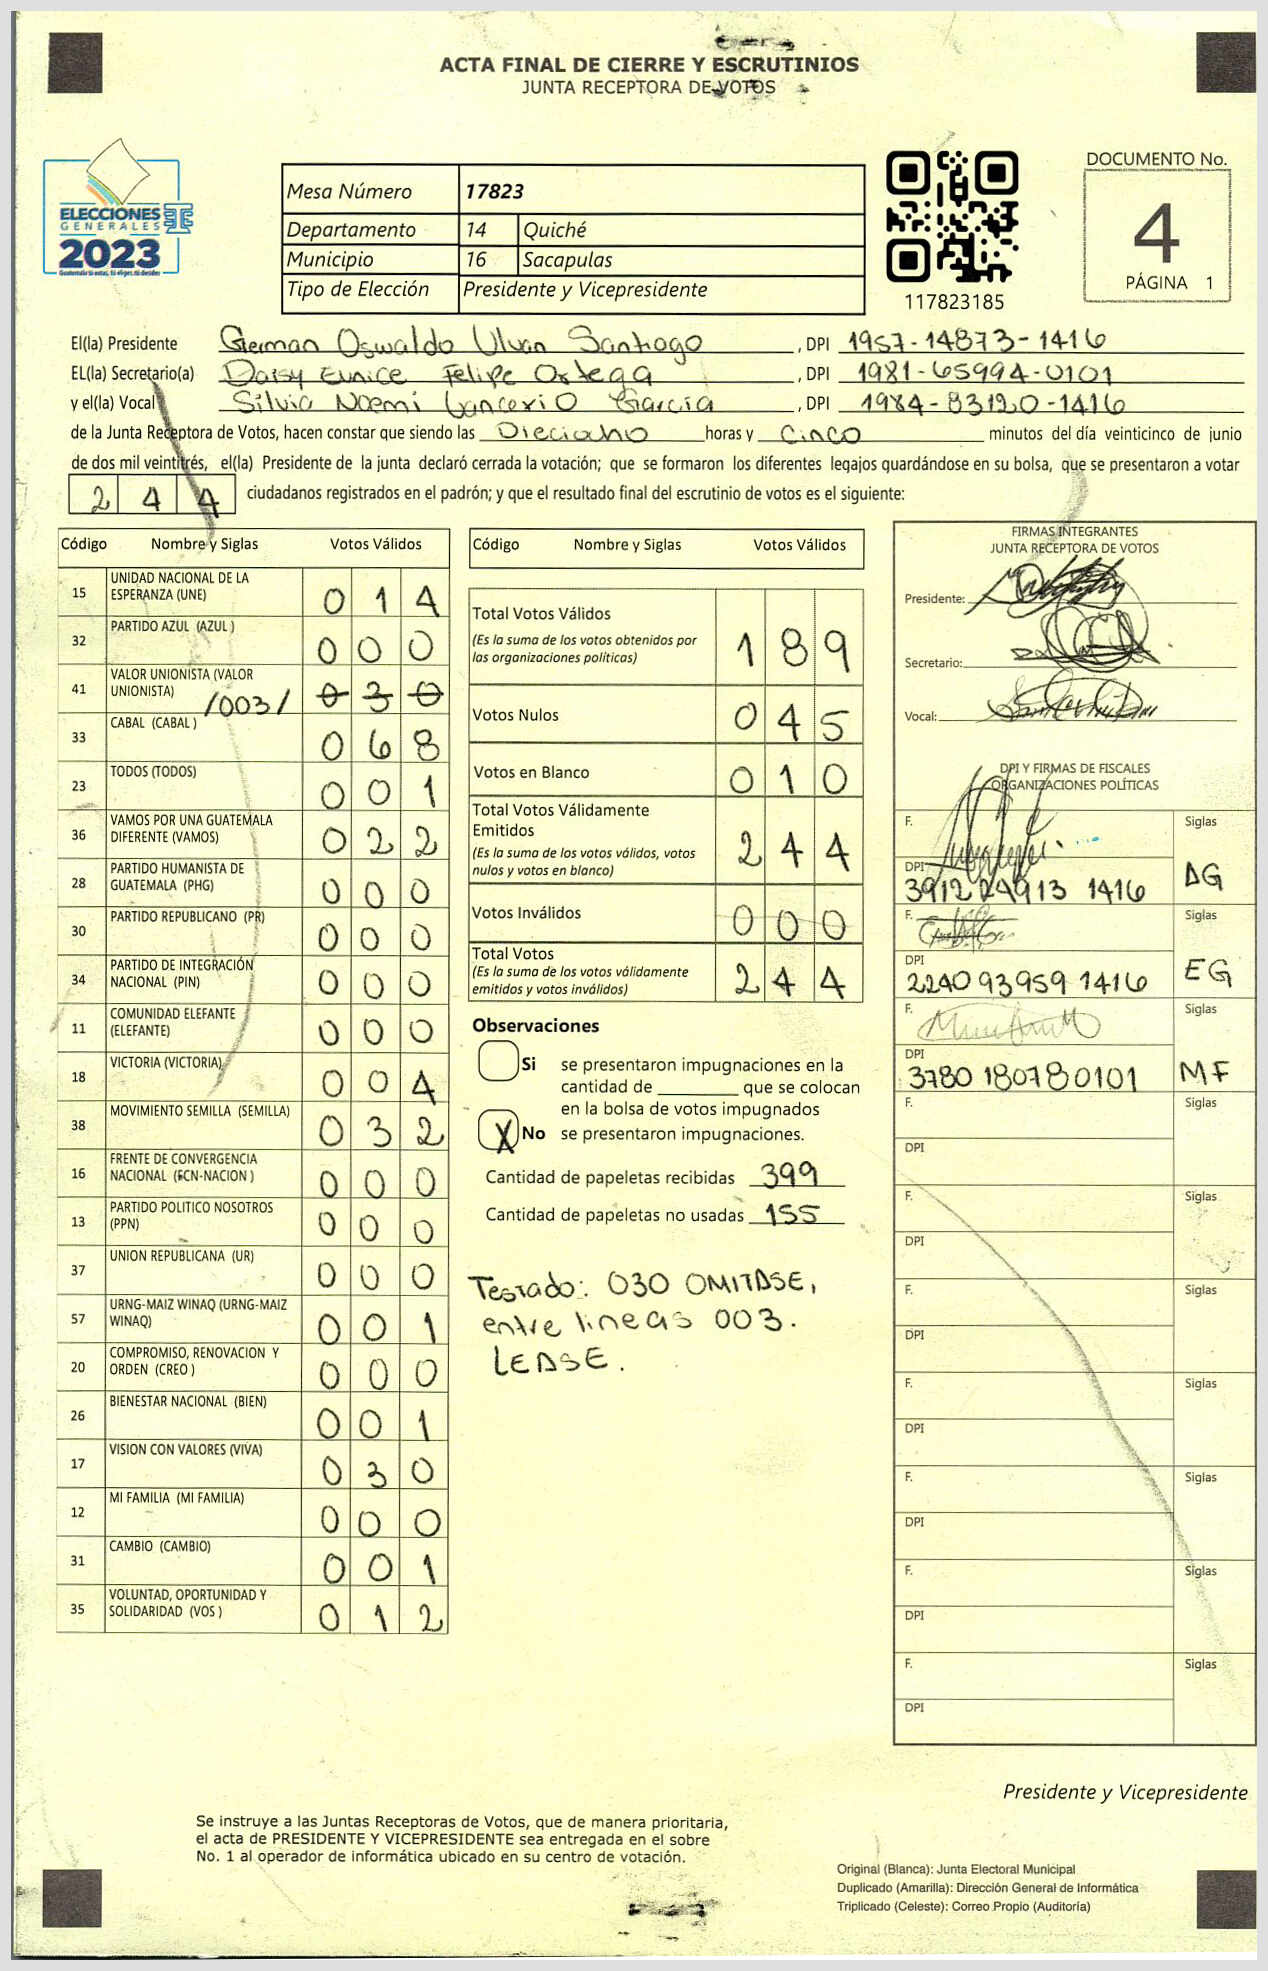 ACTA FINAL DE CIERRE Y ESCRUTINIOS
JUNTA RECEPTORA DE VOTOS
ELECCIONES
GENERALES
2023
Mesa Número 17823
Departamento 14 Quiché
Municipio 16 Sacapulas
Tipo de Elección Presidente y Vicepresidente
117823185
DOCUMENTO No.
4
PÁGINA 1
El(la) Presidente German Oswaldo Ulvan Santiago, DPI 1957-14873-1416
EL(la) Secretario(a) Daisy Eunice Felipe Ortega, DPI 1981-65994-0101
y el(la) Vocal Silvia Noemi Garcia, DPI 1984-83120-1416
de la Junta Receptora de Votos, hacen constar que siendo las Dieciocho horas y Cinco minutos del día veinticinco de junio
de dos mil veintitrés, el(la) Presidente de la junta declaró cerrada la votación; que se formaron los diferentes legajos guardándose en su bolsa, que se presentaron a votar
244 ciudadanos registrados en el padrón; y que el resultado final del escrutinio de votos es el siguiente:
Código Nombre y Siglas Votos Válidos
15 UNIDAD NACIONAL DE LA ESPERANZA (UNE) 014
32 PARTIDO AZUL (AZUL ) 000
41 VALOR UNIONISTA (VALOR UNIONISTA) /003/ 030
33 CABAL (CABAL ) 068
23 TODOS (TODOS) 001
36 VAMOS POR UNA GUATEMALA DIFERENTE (VAMOS) 022
28 PARTIDO HUMANISTA DE GUATEMALA (PHG) 000
30 PARTIDO REPUBLICANO (PR) 000
34 PARTIDO DE INTEGRACIÓN NACIONAL (PIN) 000
11 COMUNIDAD ELEFANTE (ELEFANTE) 000
18 VICTORIA (VICTORIA) 004
38 MOVIMIENTO SEMILLA (SEMILLA) 032
16 FRENTE DE CONVERGENCIA NACIONAL (FCN-NACION ) 000
13 PARTIDO POLITICO NOSOTROS (PPN) 000
37 UNION REPUBLICANA (UR) 000
57 URNG-MAIZ WINAQ (URNG-MAIZ WINAQ) 001
20 COMPROMISO, RENOVACION Y ORDEN (CREO ) 000
26 BIENESTAR NACIONAL (BIEN) 001
17 VISION CON VALORES (VIVA) 030
12 MI FAMILIA (MI FAMILIA) 000
31 CAMBIO (CAMBIO) 001
35 VOLUNTAD, OPORTUNIDAD Y SOLIDARIDAD (VOS ) 012
Código Nombre y Siglas Votos Válidos
Total Votos Válidos 189
(Es la suma de los votos obtenidos por
las organizaciones políticas)
Votos Nulos 045
Votos en Blanco 010
Total Votos Válidamente
Emitidos 244
(Es la suma de los votos válidos, votos
nulos y votos en blanco)
Votos Inválidos 000
Total Votos 244
(Es la suma de los votos válidamente
emitidos y votos inválidos)
Observaciones
Si se presentaron impugnaciones en la
cantidad de ________ que se colocan
en la bolsa de votos impugnados
X No se presentaron impugnaciones.
Cantidad de papeletas recibidas 399
Cantidad de papeletas no usadas 155
Testado: 030 OMITASE,
entre lineas 003.
LEASE.
FIRMAS INTEGRANTES
JUNTA RECEPTORA DE VOTOS
Presidente:
Secretario:
Vocal:
DPI Y FIRMAS DE FISCALES
ORGANIZACIONES POLÍTICAS
F. Siglas
DPI
3912 24913 1416 AG
F. Siglas
DPI
2240 93959 1416 EG
F. Siglas
DPI
3780 18078 0101 MF
F. Siglas
DPI
F. Siglas
DPI
F. Siglas
DPI
F. Siglas
DPI
F. Siglas
DPI
F. Siglas
DPI
F. Siglas
DPI
Presidente y Vicepresidente
Se instruye a las Juntas Receptoras de Votos, que de manera prioritaria,
el acta de PRESIDENTE Y VICEPRESIDENTE sea entregada en el sobre
No. 1 al operador de informática ubicado en su centro de votación.
Original (Blanca): Junta Electoral Municipal
Duplicado (Amarilla): Dirección General de Informática
Triplicado (Celeste): Correo Propio (Auditoría)